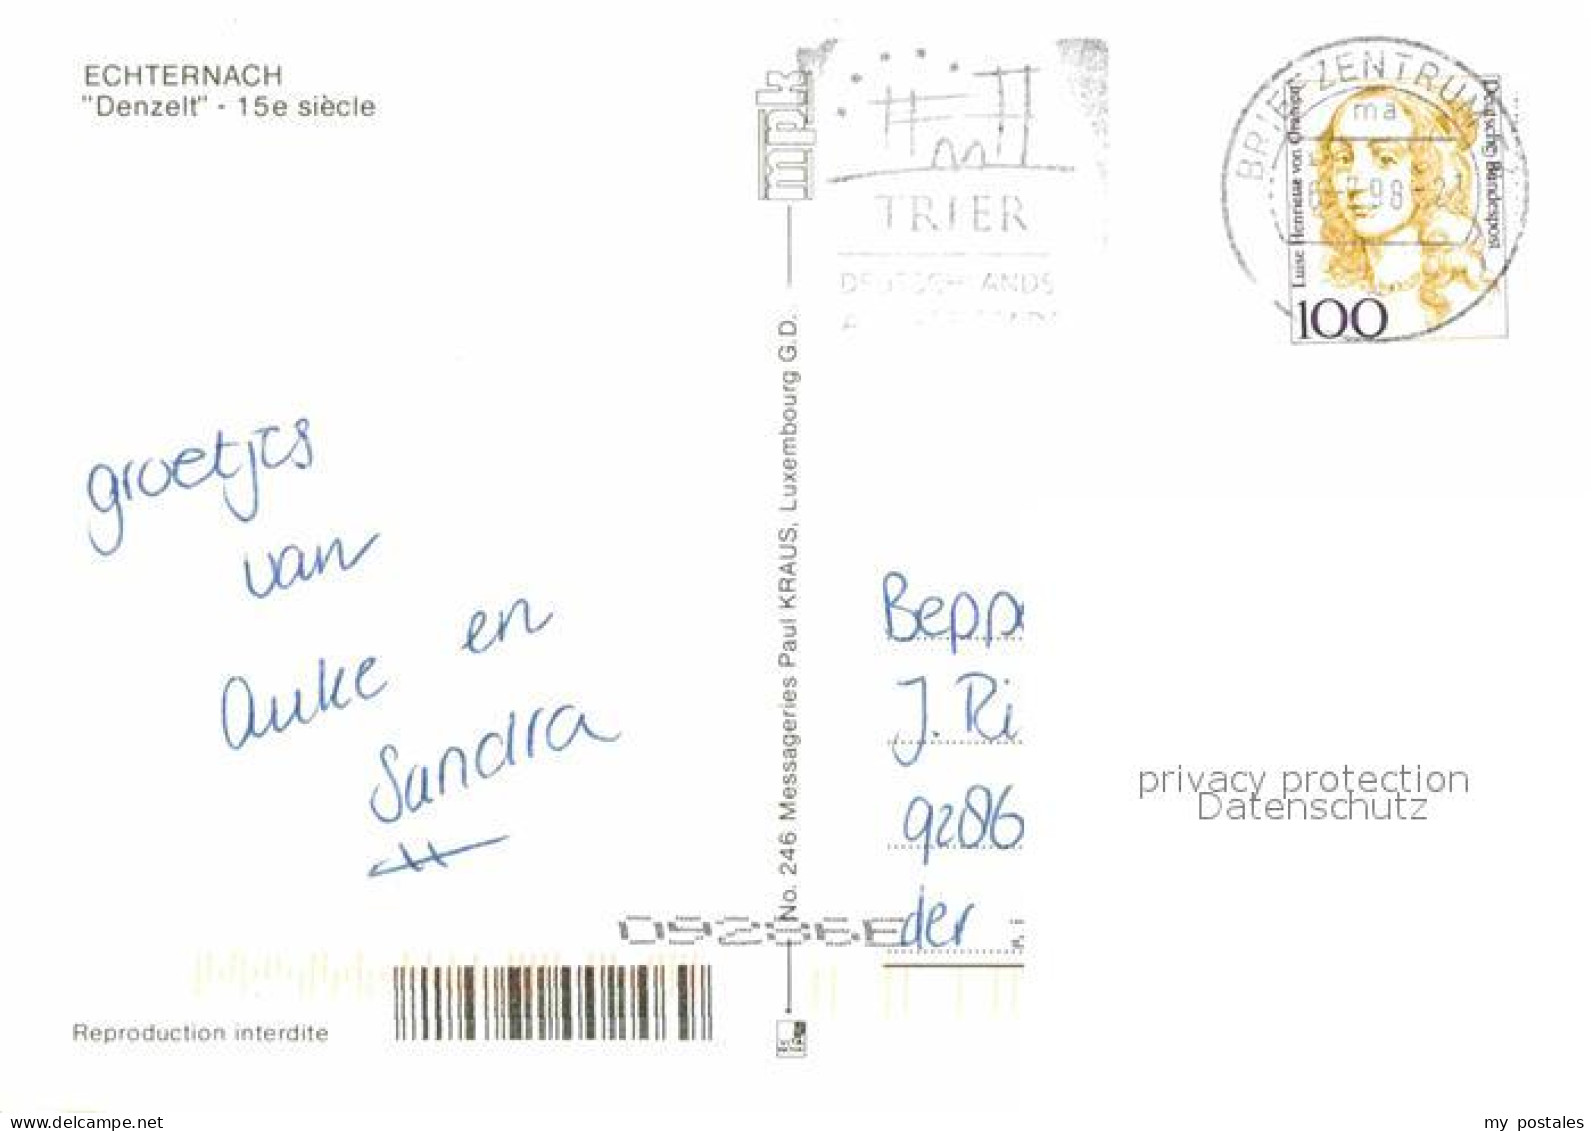 ECHTERNACH
"Denzelt" - 15e siècle
mpk
TRIER
DEUTSCHLANDS
BRIEFZENTRUM
ma
Luise Henriette von Oranien
Deutsche Bundespost
100
groetjes
van
Auke en
Sandra
No. 246 Messageries Paul KRAUS, Luxembourg G.D.
Bepp
J. Ri
9286
der
privacy protection
Datenschutz
Reproduction interdite
groetjes
my postales